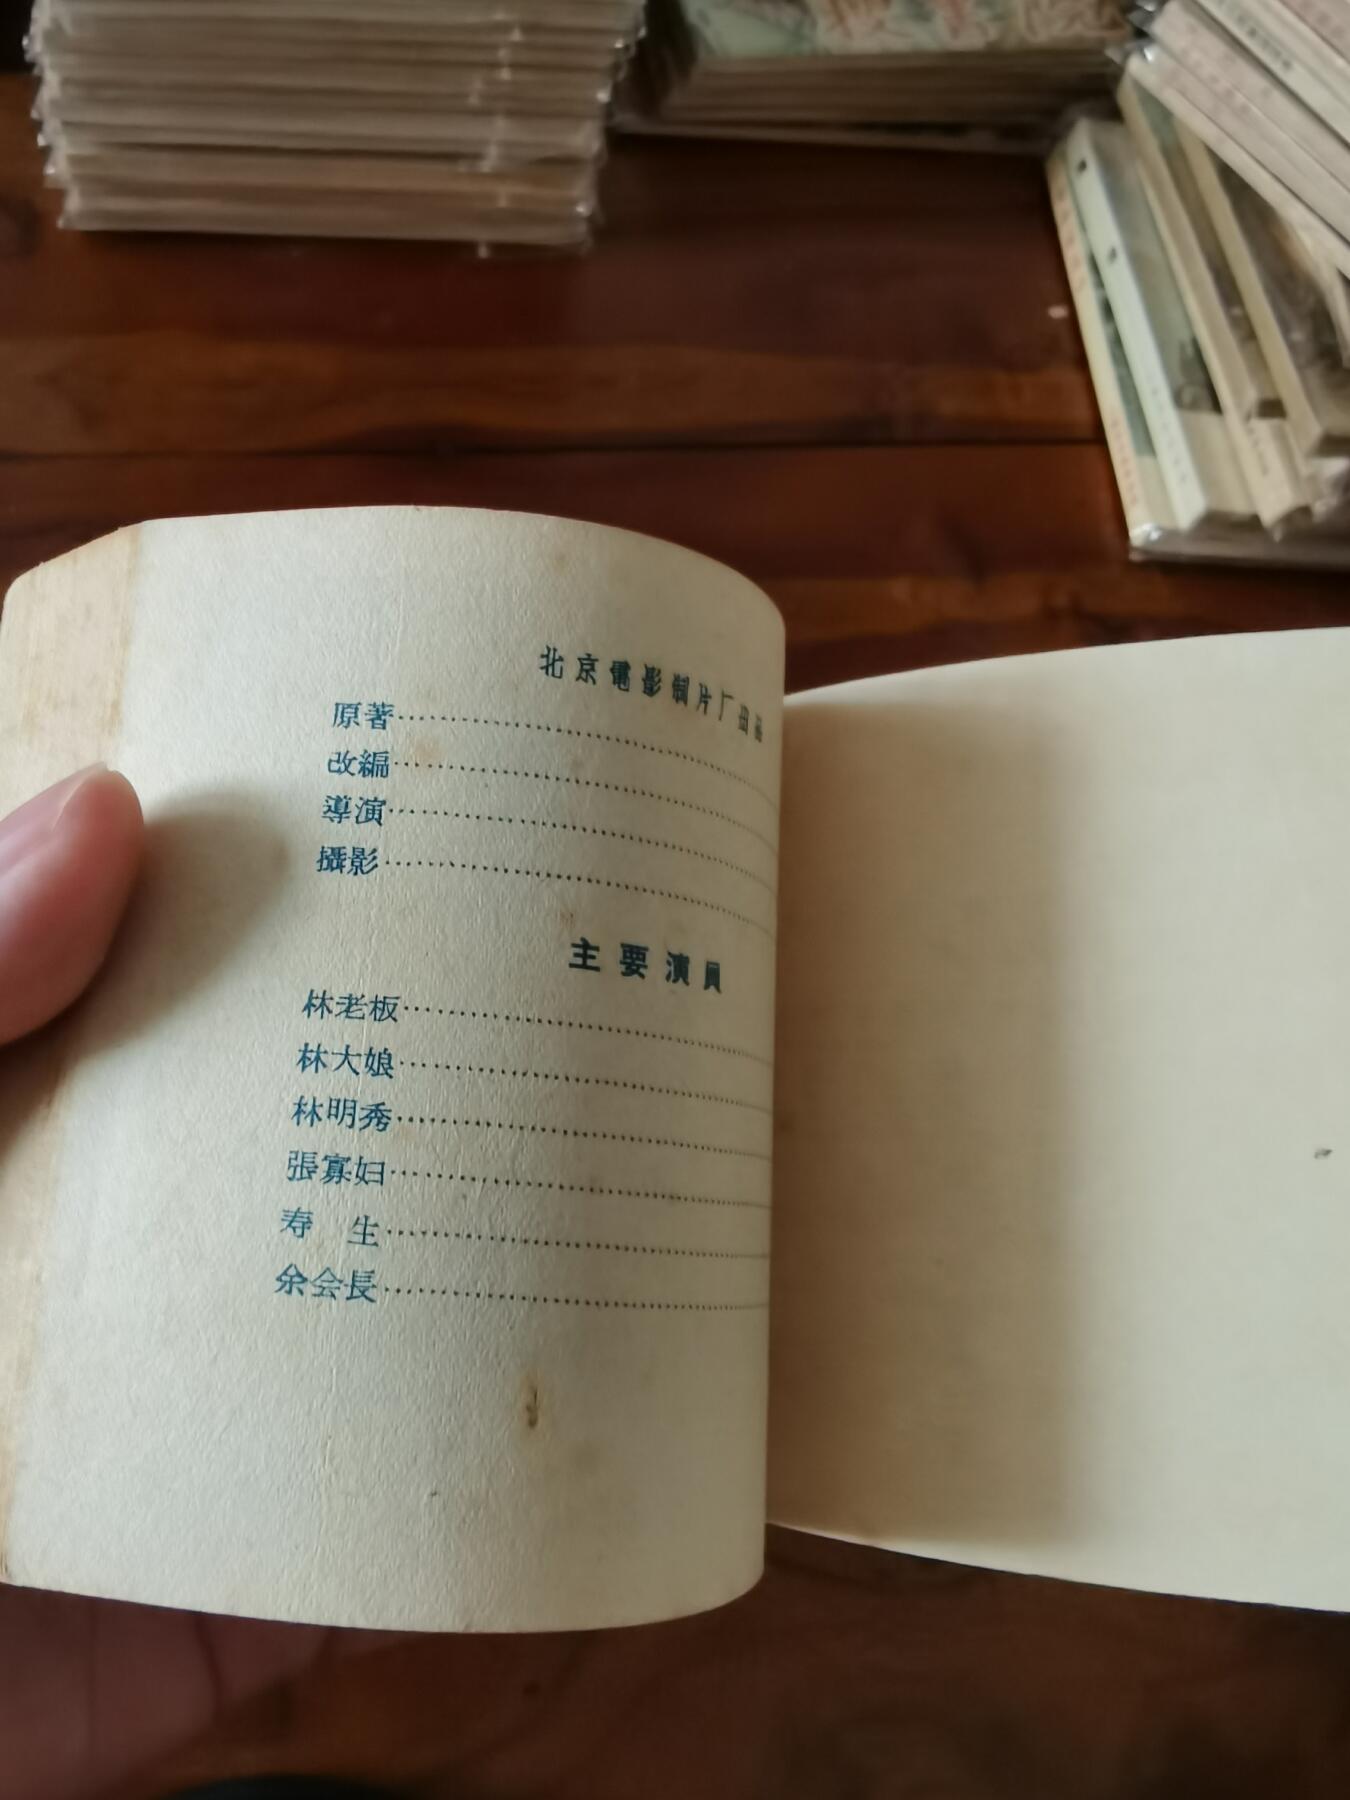 北京電影制片厂出品
原著
改編
導演
攝影
主要演員
林老板
林大娘
林明秀
張寡妇
寿 生
余会長